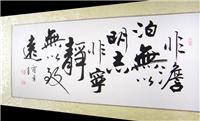 非澹
泊無以
明志
非寧
靜
無以致
遠